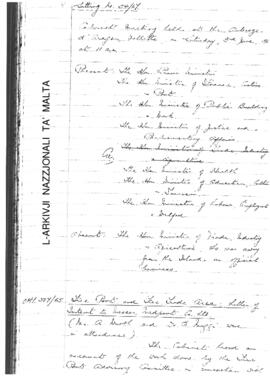 Sitting No.
Cabinet Meeting held at the Auberge
d'Aragon Valletta on Saturday, 3rd June,
at 11 am.
Present: The Hon. Prime Minister
The Hon. Minister of Finance, Customs
& Port
The Hon. Minister of Public Building
& Works
The Hon. Minister of Justice and
Parliamentary Affairs
The Hon. Minister of Trade, Industry
& Agriculture
The Hon. Minister of Health
The Hon. Minister of Education, Culture
& Tourism
The Hon. Minister of Labour, Employment
& Welfare
Absent: The Hon. Minister of Trade, Industry
& Agriculture, who was away
from the Island on official
business.
Free Port and Free Trade Area: Letter of
Intent to
(Mr. A and Dr. were
in attendance)
The Cabinet heard an
account of the work done by the Free
Port Advisory Committee in connection with
L-ARKIVJI NAZZJONALI TA' MALTA